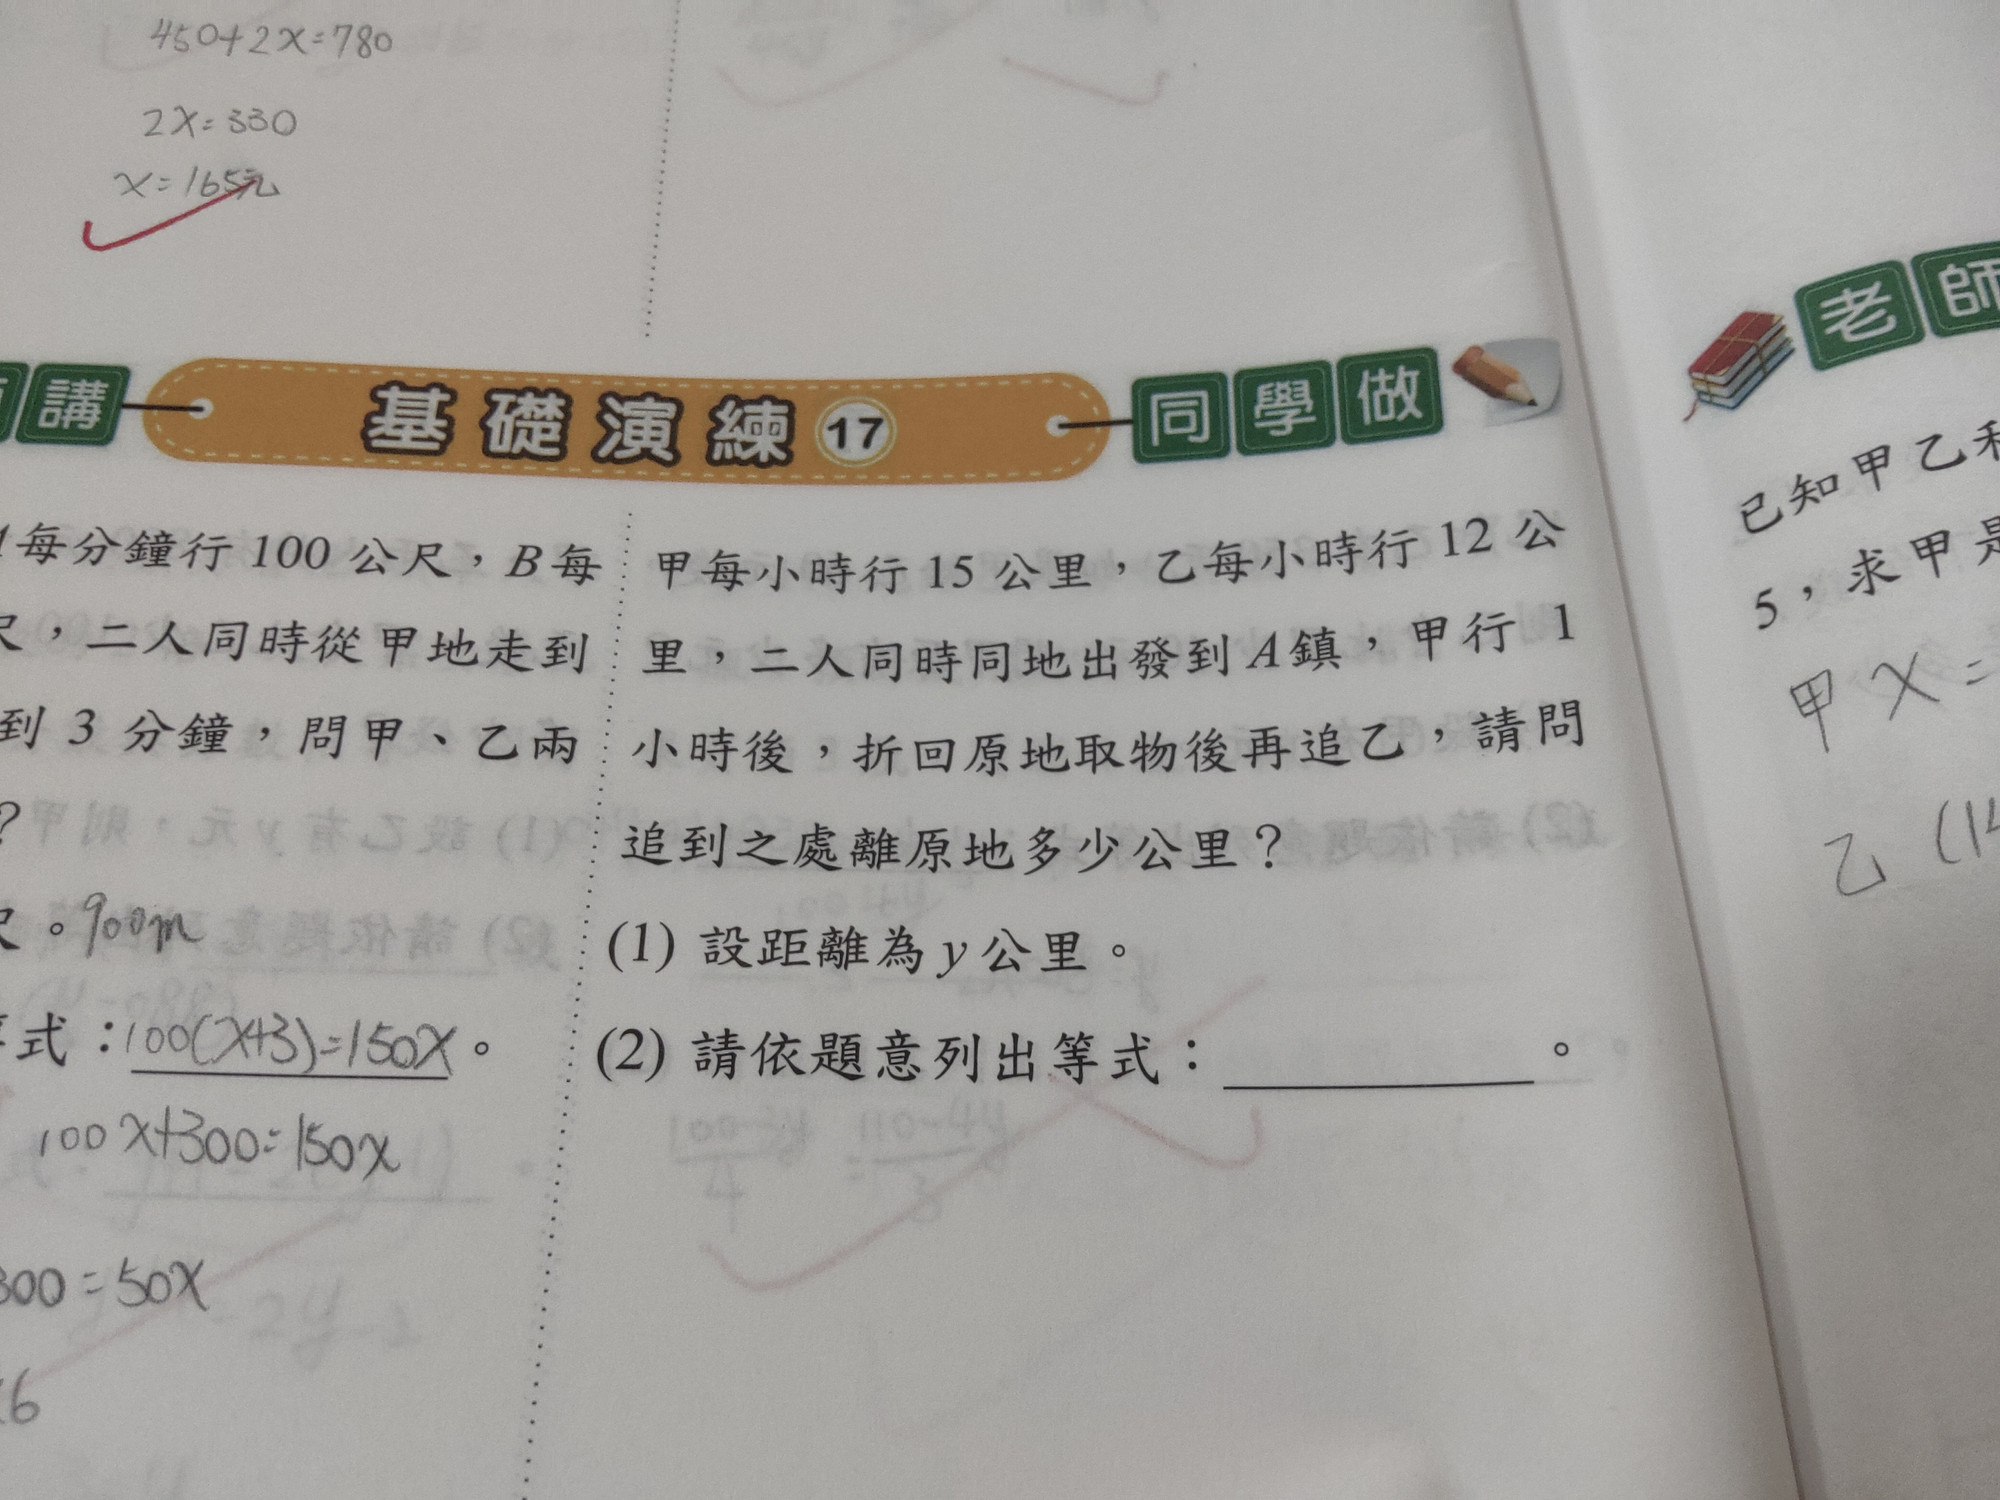 450+2x=780
2x=330
x=165元
講
基礎演練 17
同學做
老師
每分鐘行 100 公尺，B每
尺，二人同時從甲地走到
到 3 分鐘，問甲、乙兩
？
。900m
式：100(x+3)=150x。
100x+300=150x
300=50x
6
甲每小時行 15 公里，乙每小時行 12 公
里，二人同時同地出發到A鎮，甲行 1
小時後，折回原地取物後再追乙，請問
追到之處離原地多少公里？
(1) 設距離為y公里。
(2) 請依題意列出等式：。
已知甲乙
5，求甲是
甲 x=
乙 (14